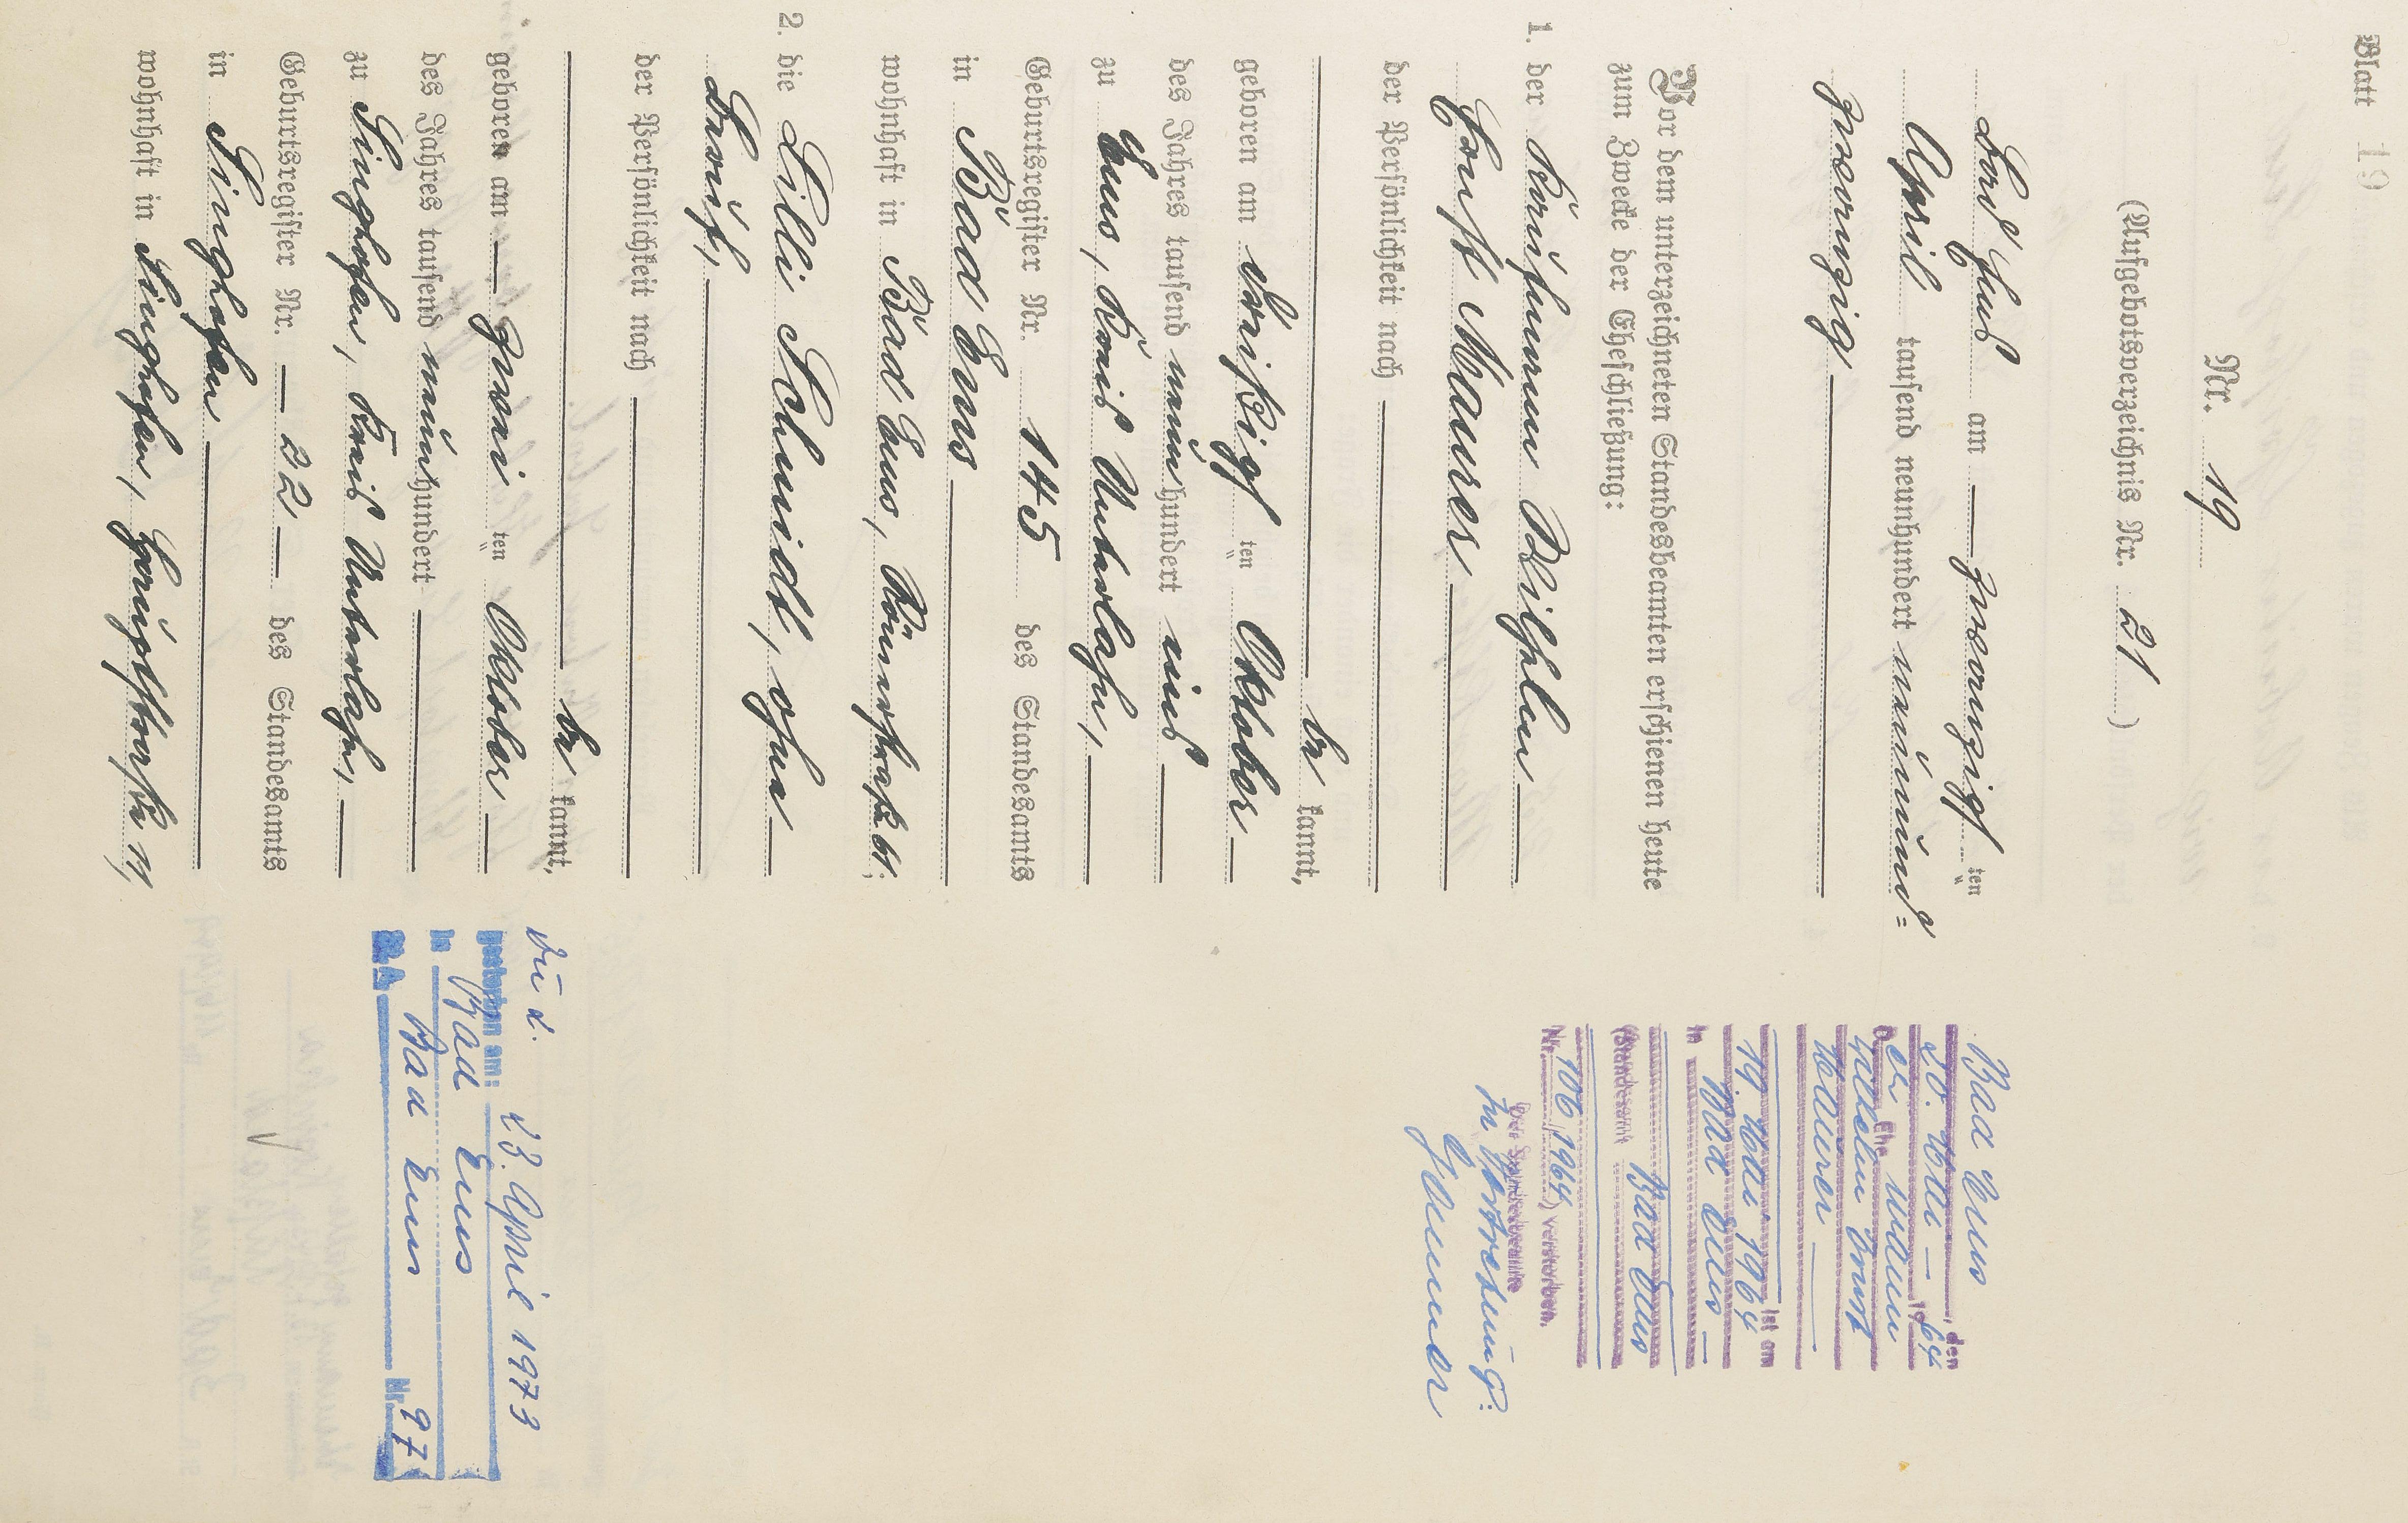 Blatt 19
Nr. 19
(Aufgebotsverzeichnis Nr. 21)
Bad Ems am — zwanzigsten
April tausend neunhundert neunund=
zwanzig —
Vor dem unterzeichneten Standesbeamten erschienen heute
zum Zwecke der Eheschließung:
1. der Kaufmann Wilhelm —
Ernst Maurer —
der Persönlichkeit nach —
be kannt,
geboren am dreißigsten Oktober —
des Jahres tausend neunhundert eins —
zu Ems, Kreis Unterlahn, —
Geburtsregister Nr. 145 des Standesamts
in Bad Ems —
wohnhaft in Bad Ems, Römerstraße 61.
2. die Lilli Schmidt, ohne —
Beruf, —
der Persönlichkeit nach —
be kannt,
geboren am — zwei ten Oktober —
des Jahres tausend neunhundert —
zu Singhofen, Kreis Unterlahn, —
Geburtsregister Nr. — 22 — des Standesamts
in Singhofen —
wohnhaft in Singhofen, Hauptstraße 11
Bad Ems, den
20. Mai — 1964
Der Ehemann
Wilhelm Ernst
Maurer —
ist am
19. Mai 1964
in Bad Ems —
(Standesamt Bad Ems
Nr. 106/1964) verstorben.
Der Standesbeamte
In Vertretung:
gestorben am: 28. April 1973
in Bad Ems
StA Bad Ems Nr. 97